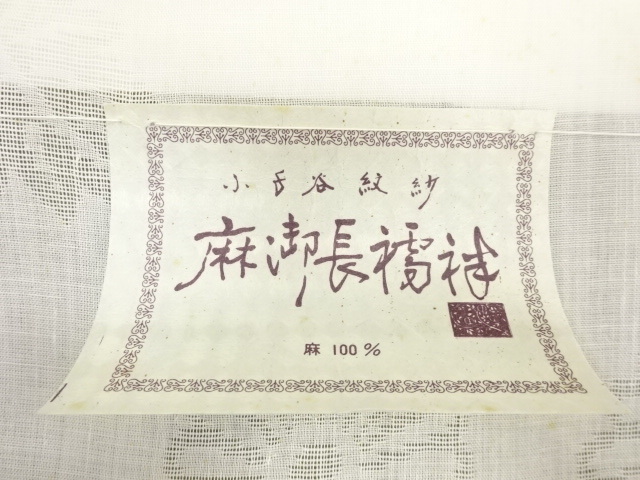 小千谷紋紗
麻御長襦袢
麻 100%